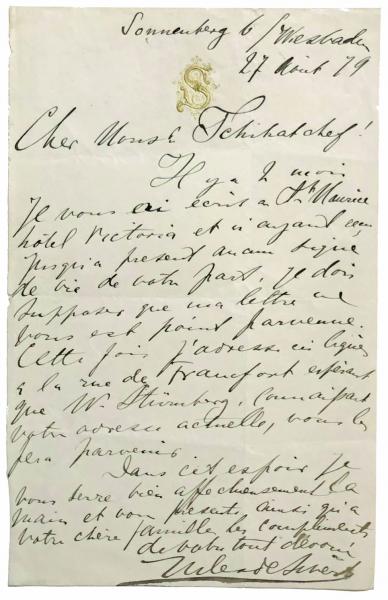 Sonnenberg b/Wiesbaden
27 Août 79
S
Cher Monsr Tchihatchef!
Il y a 2 mois
Je vous ai écrit a St Maurice
hôtel Victoria et n'ayant eu
jusqu'a present aucun signe
de vie de votre part, je dois
supposer que ma lettre ne
vous est point parvenue.
Cette fois j'adresse ces lignes
a la rue de Francfort espérant
que Mr Stürmberg, connaissant
votre adresse actuelle, vous les
fera parvenir.
Dans cet espoir je
vous serre bien affectueusement la
main et vous presente ainsi qu'a
votre chère famille les compliments
de votre tout dévoué